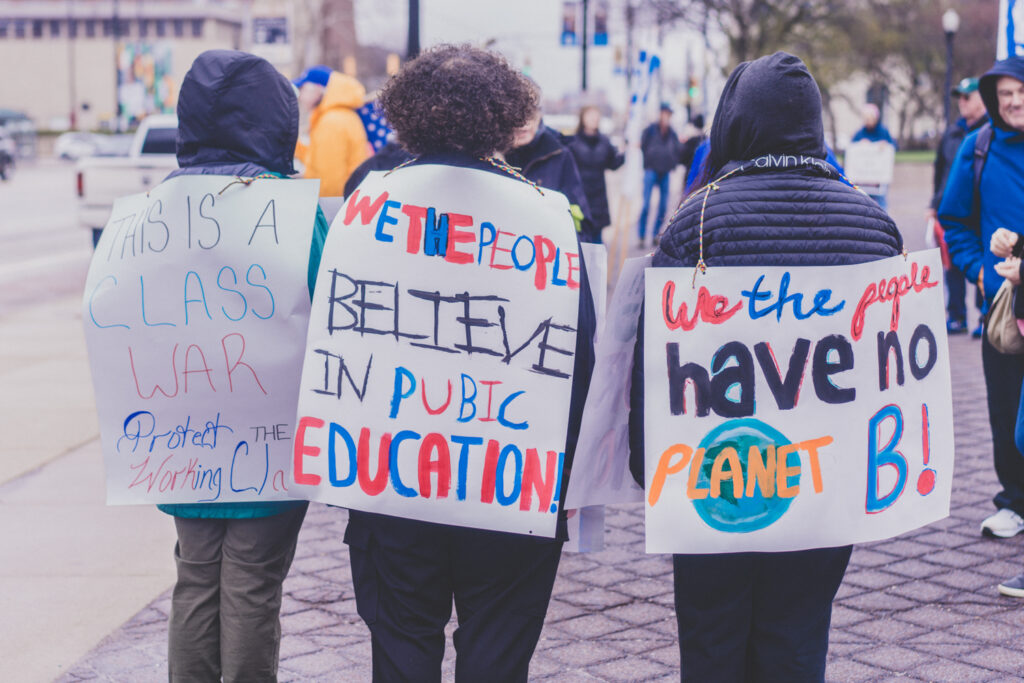 THIS IS A
CLASS
WAR
Protect THE
Working Cla
WE THE PEOPLE
BELIEVE
IN PUBIC
EDUCATION!
We the people
have no
PLANET B!
Calvin Kle